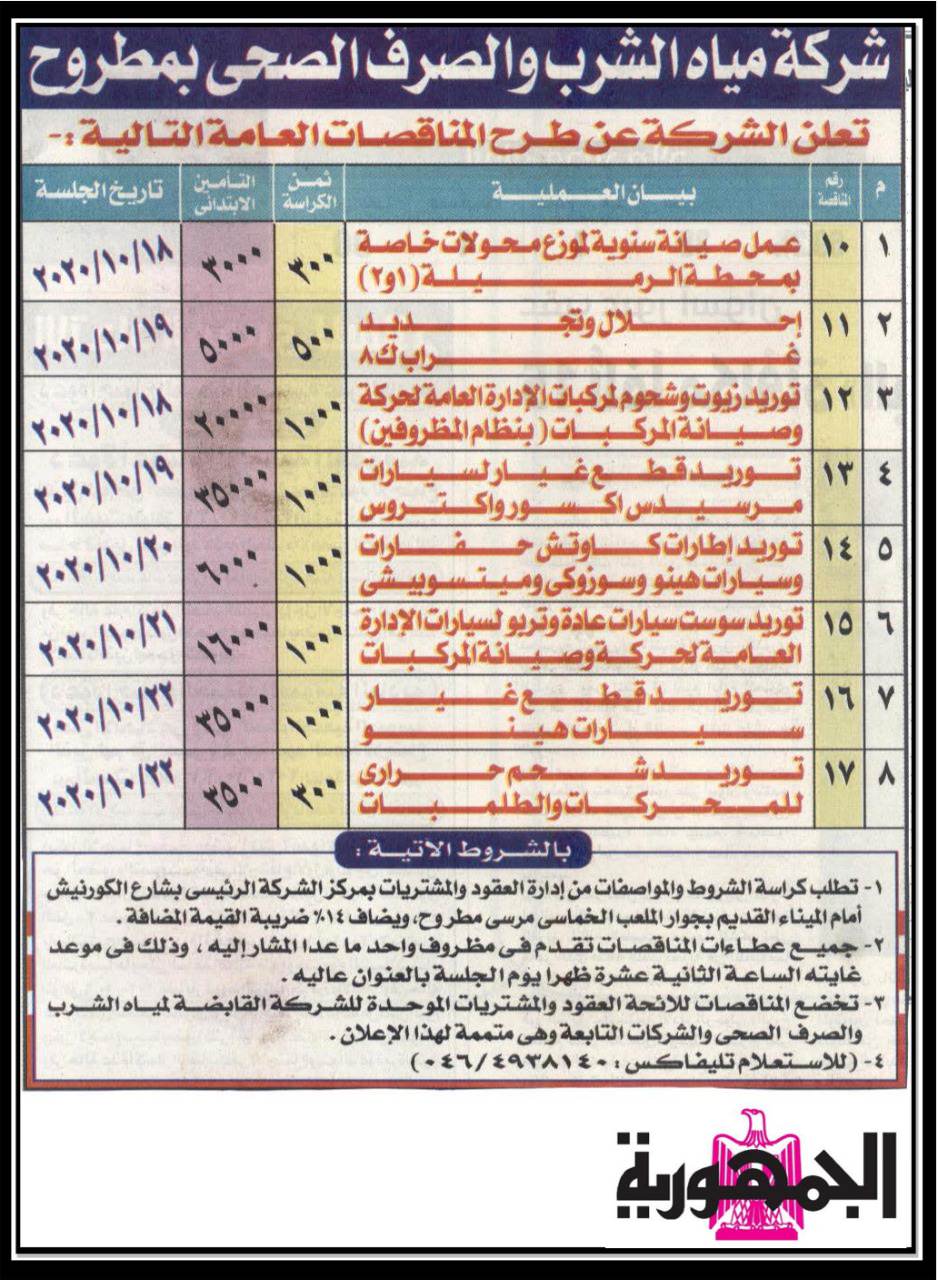 شركة مياه الشرب والصرف الصحى بمطروح
تعلن الشركة عن طرح المناقصات العامة التالية :-
م رقم المناقصة بيان العملية ثمن الكراسة التأمين الابتدائى تاريخ الجلسة
١ ١٠ عمل صيانة سنوية لموزع محولات خاصة ٣٠٠ ٣٠٠٠ ٢٠٢٠/١٠/١٨
بمحطة الرميلة (١و٢)
٢ ١١ إحلال وتجديد ٥٠٠ ٥٠٠٠ ٢٠٢٠/١٠/١٩
غراب ك٨
٣ ١٢ توريد زيوت وشحوم لمركبات الإدارة العامة لحركة ١٠٠٠ ٢٠٠٠٠ ٢٠٢٠/١٠/١٨
وصيانة المركبات ( بنظام المظروفين)
٤ ١٣ توريد قطع غيار لسيارات ١٠٠٠ ٣٥٠٠٠ ٢٠٢٠/١٠/١٩
مرسيدس اكسور واكتروس
٥ ١٤ توريد إطارات كاوتش حفارات ١٠٠٠ ٦٠٠٠ ٢٠٢٠/١٠/٢٠
وسيارات هينو وسوزوكى وميتسوبيشى
٦ ١٥ توريد سوست سيارات عادة وتربو لسيارات الإدارة ١٠٠٠ ١٦٠٠٠ ٢٠٢٠/١٠/٢١
العامة لحركة وصيانة المركبات
٧ ١٦ توريد قطع غيار ١٠٠٠ ٣٥٠٠٠ ٢٠٢٠/١٠/٢٢
سيارات هينو
٨ ١٧ توريد شحم حرارى ٣٠٠ ٣٥٠٠ ٢٠٢٠/١٠/٢٢
للمحركات والطلمبات
بالشروط الآتية :
١- تطلب كراسة الشروط والمواصفات من إدارة العقود والمشتريات بمركز الشركة الرئيسى بشارع الكورنيش
أمام الميناء القديم بجوار الملعب الخماسى مرسى مطروح، ويضاف ١٤% ضريبة القيمة المضافة .
٢- جميع عطاءات المناقصات تقدم فى مظروف واحد ما عدا المشار إليه ، وذلك فى موعد
غايته الساعة الثانية عشرة ظهرا يوم الجلسة بالعنوان عاليه .
٣- تخضع المناقصات للائحة العقود والمشتريات الموحدة للشركة القابضة لمياه الشرب
والصرف الصحى والشركات التابعة وهى متممة لهذا الإعلان .
٤- (للاستعلام تليفاكس : ٠٤٦/٤٩٣٨١٤٠)
الجمهورية